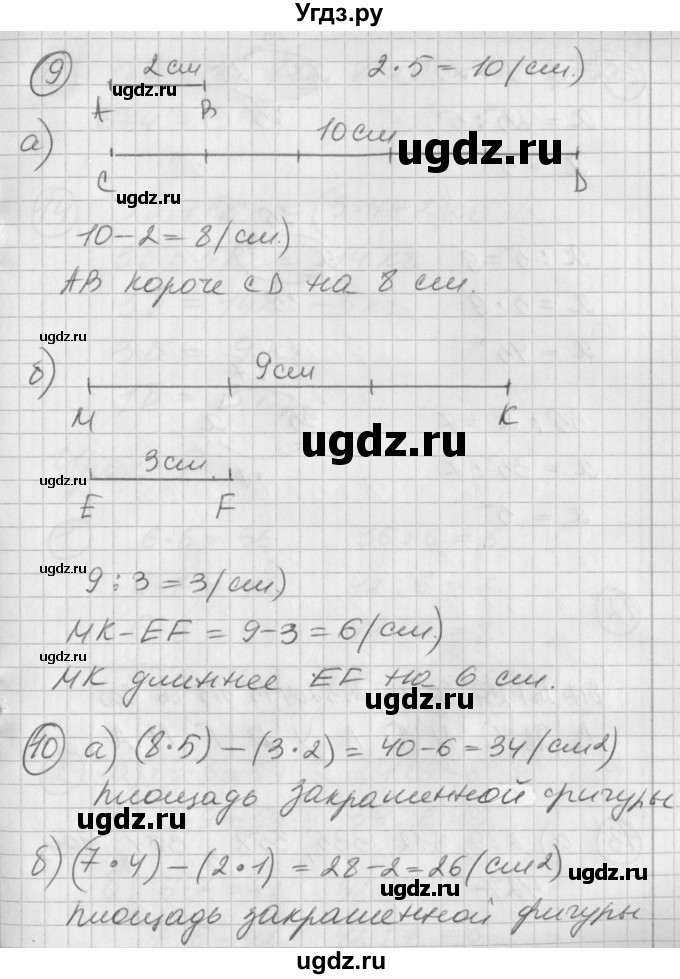 Угдз.ру
9 2 см 2·5 = 10 (см.)
A B
а) 10 см
C D
10-2 = 8 (см.)
AB короче CD на 8 см.
б) 9 см
M K
3 см.
E F
9:3 = 3 (см.)
MK-EF = 9-3 = 6 (см.)
MK длиннее EF на 6 см.
10 а) (8·5) - (3·2) = 40-6 = 34 (см2)
площадь закрашенной фигуры
б) (7·4) - (2·1) = 28-2 = 26 (см2)
площадь закрашенной фигуры
ugdz.ru
ugdz.ru
ugdz.ru
ugdz.ru
ugdz.ru
ugdz.ru
ugdz.ru
ugdz.ru
ugdz.ru
ugdz.ru
ugdz.ru
ugdz.ru
ugdz.ru